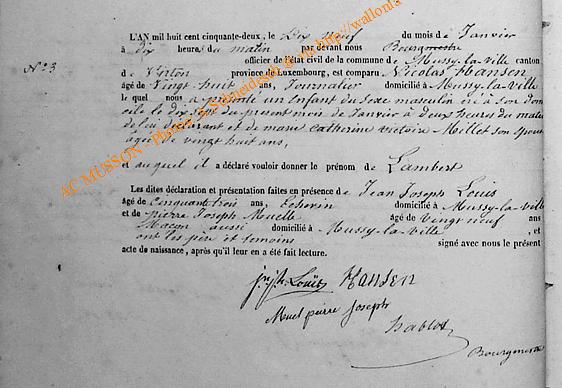 L'AN mil huit cent cinquante-deux, le Dix neuf du mois de Janvier
à dix heures du matin par devant nous Bourgmestre
officier de l'état civil de la commune de Mussy-la-ville canton
N° 3
de Virton province de Luxembourg, est comparu Nicolas Hansen
âgé de Vingt huit ans, Journalier domicilié à Mussy-la-Ville
lequel nous a présenté un Enfant du sexe masculin né à son dom
icile le dix sept du présent mois de Janvier à deux heures du matin
de lui déclarant et de marie catherine victoire Millet son épouse
âgée de vingt huit ans,
et auquel il a déclaré vouloir donner le prénom de Lambert
Les dites déclaration et présentation faites en présence de Jean Joseph Louis
âgé de Cinquante trois ans, domicilié à Mussy-la-ville
et de pierre Joseph Muelle âgé de vingt neuf ans
Maçon aussi domicilié à Mussy-la-Ville, et
ont les père et temoins signé avec nous le présent
acte de naissance, après qu'il leur en a été fait lecture.
Louis Hansen
Muel pierre Joseph
Hablot
Bourgmestre
AC MUSSON - Photo: http://wallonia